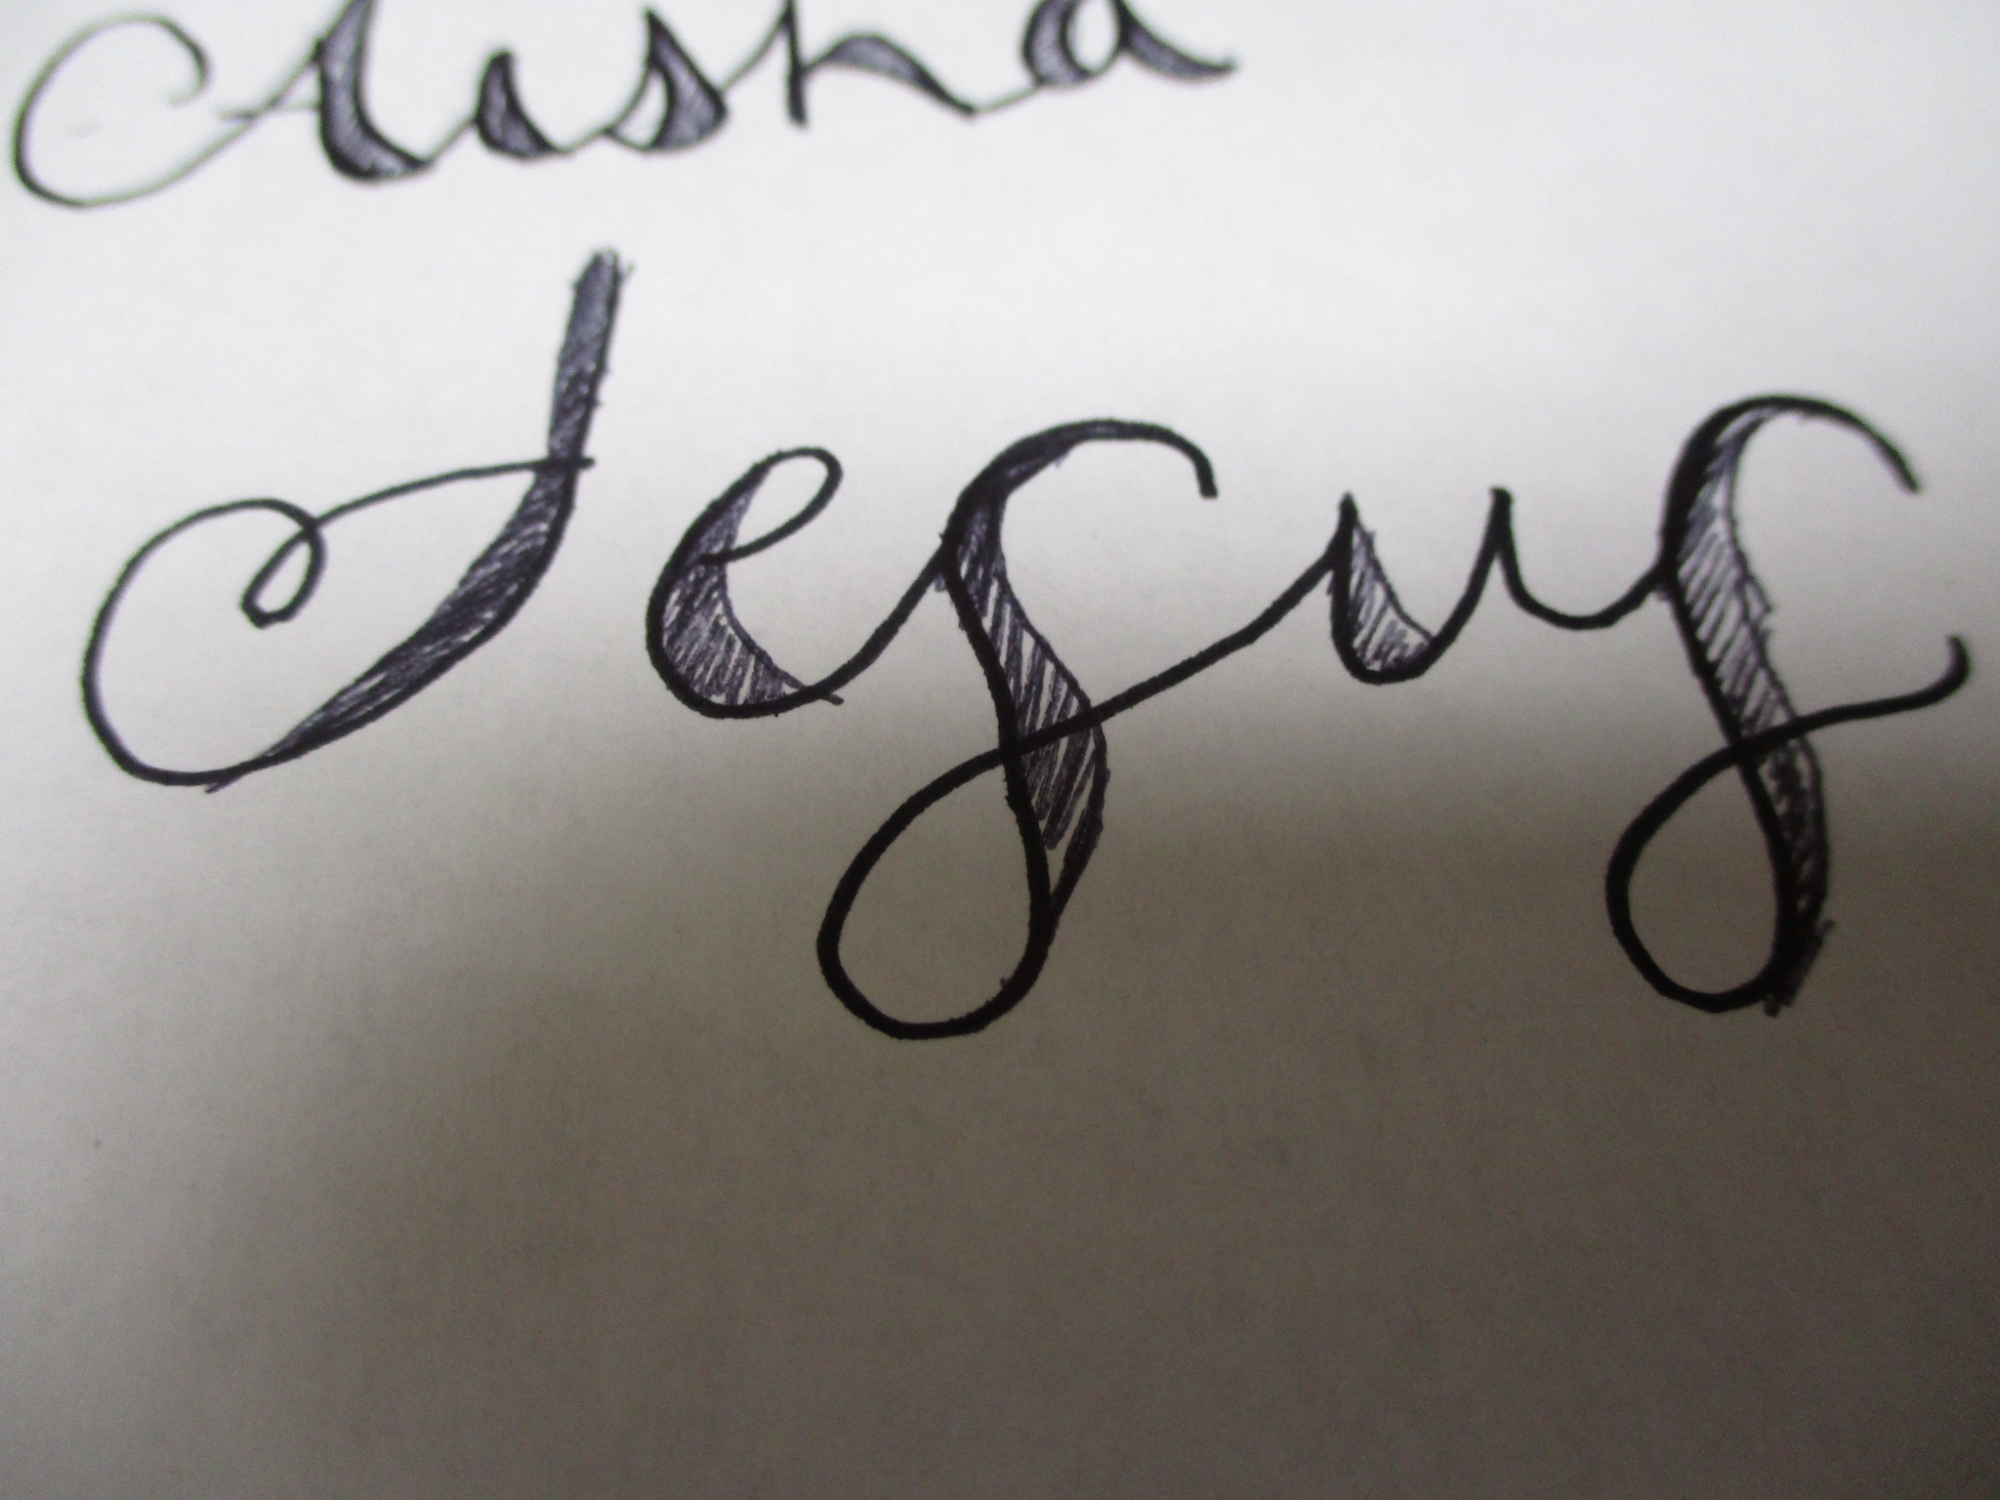 Aisha
Jesus